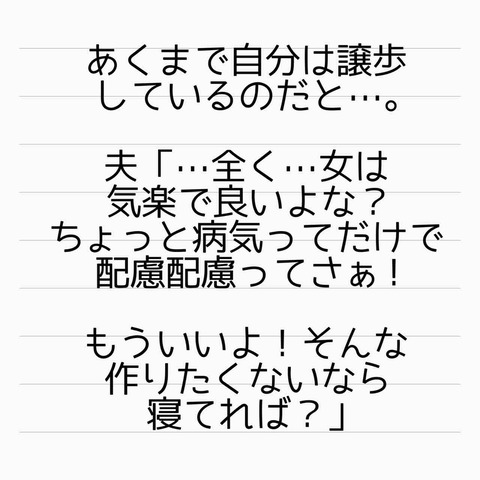 あくまで自分は譲歩
しているのだと…。
夫「…全く…女は
気楽で良いよな？
ちょっと病気ってだけで
配慮配慮ってさぁ！
もういいよ！そんな
作りたくないなら
寝てれば？」